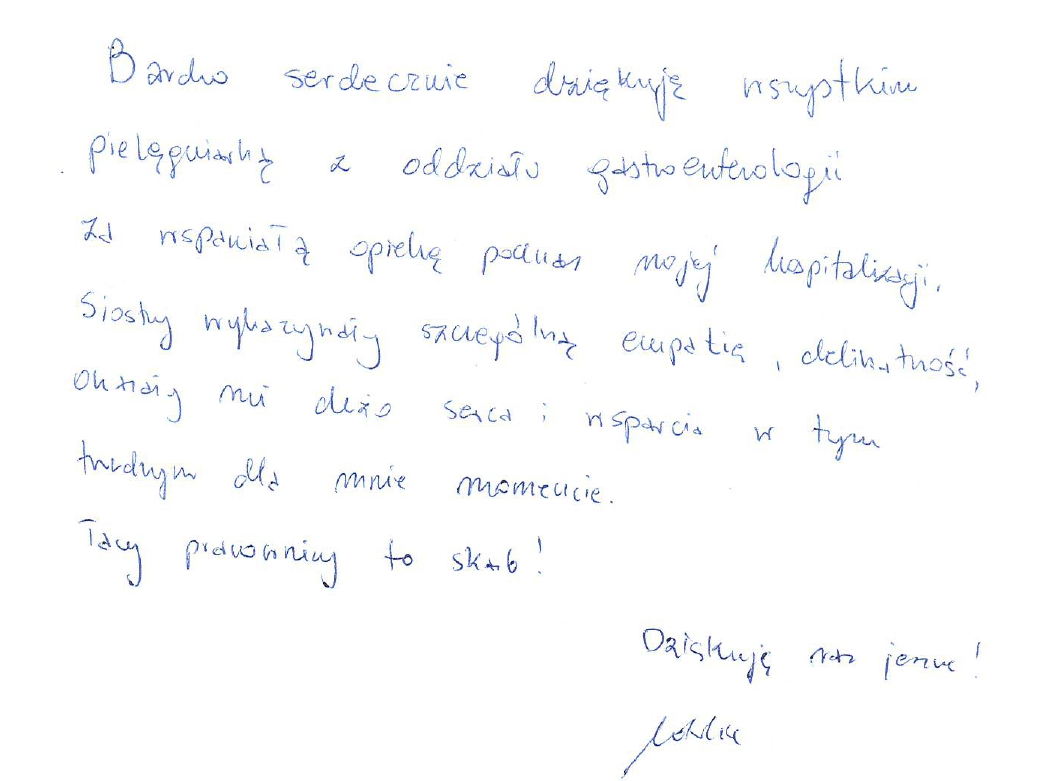 Bardzo serdecznie dziękuję wszystkim
pielęgniarką z oddziału gastroenterologii
za wspaniałą opiekę podczas mojej hospitalizacji.
Siostry wykazywały szczególną empatią, delikatność,
okazały mi dużo serca i wsparcia w tym
trudnym dla mnie momencie.
Tacy pracownicy to skarb!
Dziękuję raz jeszcze!